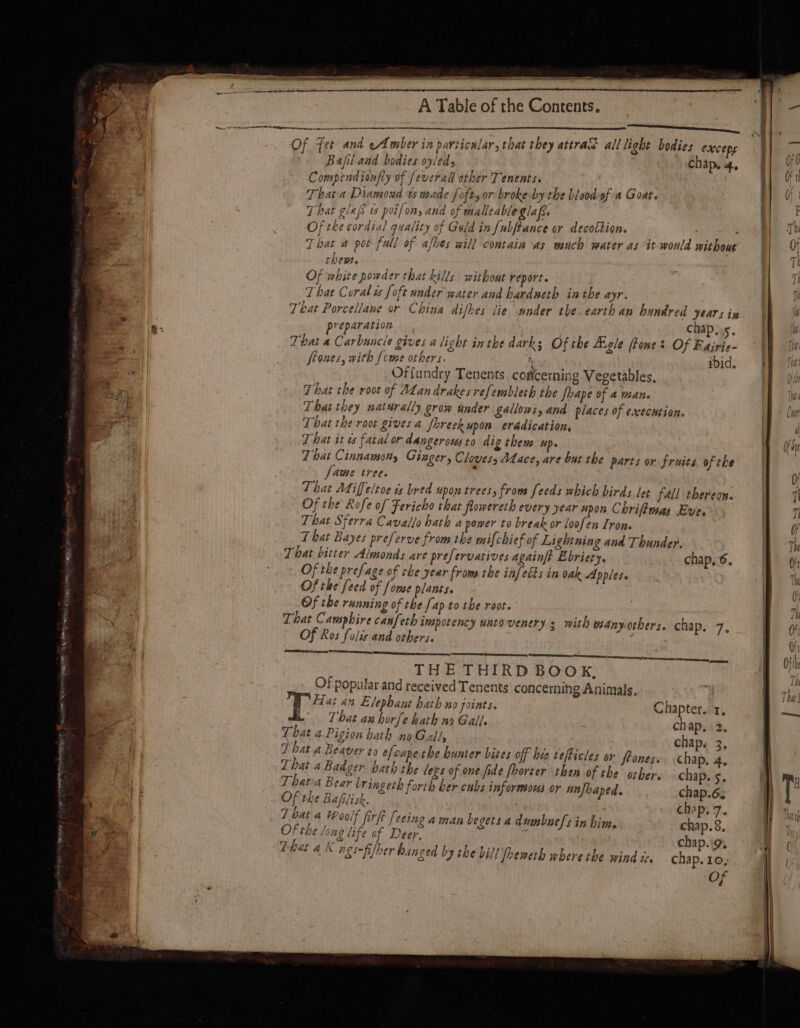 A Table of the Contents.
Of Jet and Amber in particular, that they attract all light bodies except
Basil and bodies oyled, Chap. 4.
Compendiously of severall other Tenents.
That a Diamond is made soft, or broke by the blood of a Goat.
That glass is poison, and of malleable glass.
Of the cordial quality of Gold in substance or decoction.
That a pot full of ashes will contain as much water as it would without
them.
Of white powder that kills without report.
That Coral is soft under water and hardneth in the ayr.
That Porcellane or China dishes lie under the earth an hundred years in
preparation chap. 5.
That a Carbuncle gives a light in the dark; Of the Ægle stone: Of Fairie-
stones, with some others. ibid.
Of sundry Tenents concerning Vegetables.
That the root of Mandrakes resembleth the shape of a man.
That they naturally grow under gallows, and places of execution.
That the root gives a shreek upon eradication,
That it is fatal or dangerous to dig them up.
That Cinnamon, Ginger, Cloves, Mace, are but the parts or fruits of the
same tree.
That Misseltoe is bred upon trees, from seeds which birds let fall thereon.
Of the Rose of Jericho that flowereth every year upon Christmas Eve.
That Sferra Cavallo hath a power to break or loosen Iron.
That Bayes preserve from the mischief of Lightning and Thunder.
That bitter Almonds are preservatives against Ebriety. chap. 6.
Of the presage of the year from the insects in oak Apples.
Of the seed of some plants.
Of the running of the sap to the root.
That Camphire causeth impotency unto venery; with many others. chap. 7.
Of Ros solis and others.
THE THIRD BOOK,
Of popular and received Tenents concerning Animals.
That an Elephant hath no joints. Chapter. 1.
That an horse hath no Gall. chap. 2.
That a Pigion hath no Gall, chap. 3.
That a Beaver to escape the hunter bites off his testicles or stones. chap. 4.
That a Badger hath the legs of one side shorter then of the other. chap. 5.
That a Bear bringeth forth her cubs informous or unshaped. chap. 6.
Of the Basilisk. chap. 7.
That a Woolf first seeing a man begets a dumbness in him. chap. 8.
Of the long life of Deer. chap. 9.
That a Kings-fisher hanged by the bill sheweth where the wind is. chap. 10.
Of